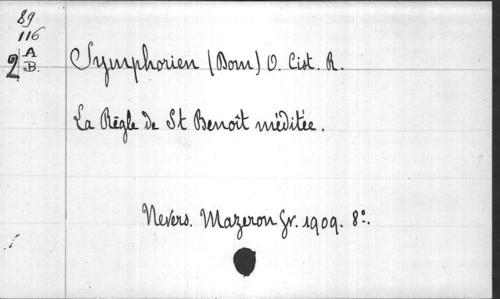 89
116
2 A
B.
Symphorien (Dom) O. Cist. R.
La Règle de St Benoît méditée.
Nevers. Mazeron fr. 1909. 8º.